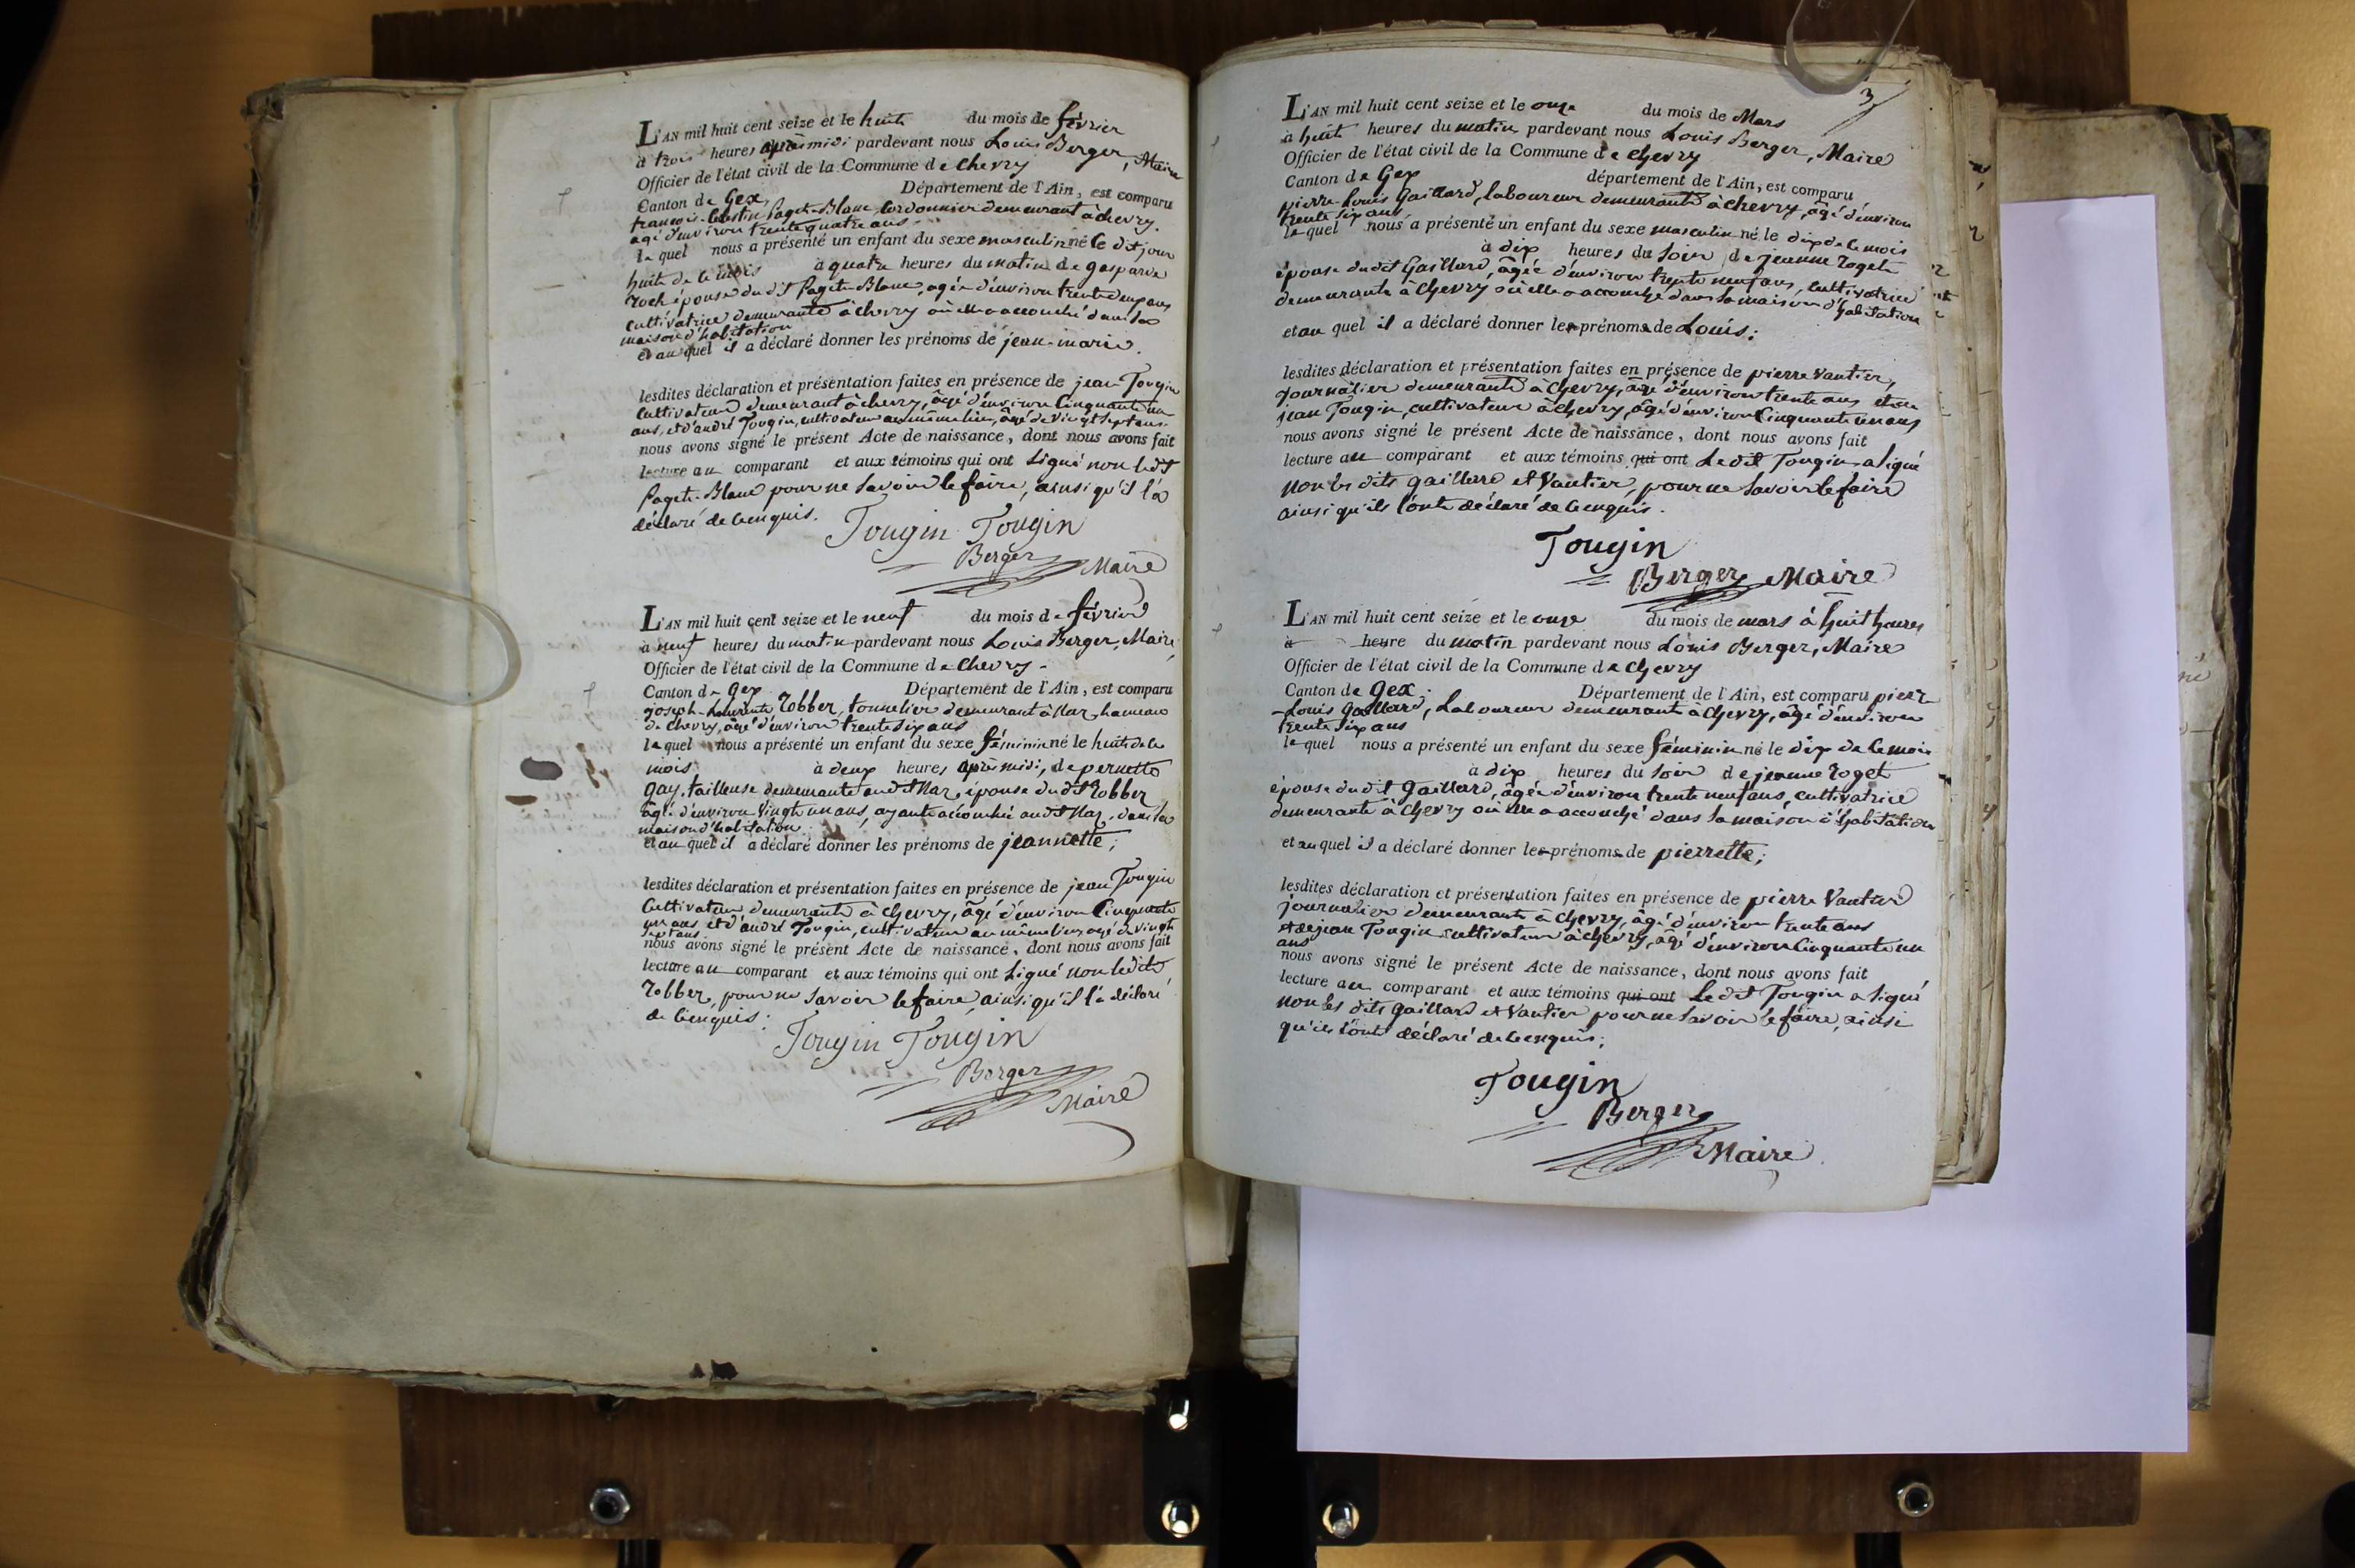 L'AN mil huit cent seize et le huit du mois de février
à trois heures après midi pardevant nous Louis Berger, Maire
Officier de l'état civil de la Commune de Chevry
Canton de Gex, Département de l'Ain, est comparu
françois-Celestin Paget-Blanc, Cordonnier demeurant à chevry,
agé d'environ trente quatre ans
lequel nous a présenté un enfant du sexe masculin né le dit jour
huit de ce mois à quatre heures du matin de gasparde
Roch épouse du dit Paget-Blanc, agée d'environ trente deux ans
cultivatrice demeurante à chevry où elle a accouché dans sa
maison d'habitation
et au quel il a déclaré donner les prénoms de jean-marie.
lesdites déclaration et présentation faites en présence de jean Tougin
cultivateur demeurant à chevry, âgé d'environ Cinquante un
ans, et d'andré Tougin, cultivateur au même lieu, âgé de vingt sept ans
nous avons signé le présent Acte de naissance, dont nous avons fait
lecture au comparant et aux témoins qui ont signé non ledit
Paget-Blanc pour ne savoir le faire, ainsi qu'il l'a
déclaré de ce enquis.
Tougin Tougin
Berger Maire
L'AN mil huit cent seize et le neuf du mois de février
à neuf heures du matin pardevant nous Louis Berger, Maire,
Officier de l'état civil de la Commune de Chevry -
Canton de Gex Département de l'Ain, est comparu
joseph-Laurent Robber, tonnelier demeurant à Naz, hameau
de Chevry, âgé d'environ trente six ans
lequel nous a présenté un enfant du sexe féminin né le huit de ce
mois à deux heures après midi, de pernette
gay, tailleuse demeurante au dit Naz, épouse du dit Robber
âgée d'environ vingt un ans, ayant accouché au dit Naz, dans sa
maison d'habitation
et au quel il a déclaré donner les prénoms de jeannette;
lesdites déclaration et présentation faites en présence de jean Tougin
Cultivateur demeurant à Chevry, âgé d'environ Cinquante
un ans et d'andré Tougin, cultivateur au même lieu, agé de vingt
sept ans
nous avons signé le présent Acte de naissance, dont nous avons fait
lecture au comparant et aux témoins qui ont signé non ledit
Robber, pour ne savoir le faire, ainsi qu'il l'a déclaré
de ce enquis:
Tougin Tougin
Berger
Maire
3
L'AN mil huit cent seize et le onze du mois de Mars
à huit heures du matin pardevant nous Louis Berger, Maire
Officier de l'état civil de la Commune de Chevry
Canton de Gex département de l'Ain, est comparu
pierre-Louis Gaillard, laboureur demeurant à Chevry, âgé d'environ
trente six ans
lequel nous a présenté un enfant du sexe masculin né le dix de ce mois
à dix heures du soir de jeanne Roget
épouse du dit Gaillard, âgée d'environ trente neuf ans, cultivatrice
demeurante à Chevry où elle a accouché dans sa maison d'habitation
et au quel il a déclaré donner les prénoms de Louis;
lesdites déclaration et présentation faites en présence de pierre Vautier,
journalier demeurant à Chevry, âgé d'environ trente ans et de
jean Tougin, cultivateur à Chevry, âgé d'environ Cinquante un ans
nous avons signé le présent Acte de naissance, dont nous avons fait
lecture au comparant et aux témoins qui ont Le dit Tougin a signé
non les dits gaillard et Vautier, pour ne savoir le faire
ainsi qu'ils l'ont déclaré de ce enquis.
Tougin
Berger Maire
L'AN mil huit cent seize et le onze du mois de mars à huit heures
à heure du matin pardevant nous Louis Berger, Maire
Officier de l'état civil de la Commune de Chevry
Canton de Gex. Département de l'Ain, est comparu pierre
-Louis Gaillard, Laboureur demeurant à Chevry, âgé d'environ
trente six ans
lequel nous a présenté un enfant du sexe féminin né le dix de ce mois
à dix heures du soir de jeanne Roget
épouse du dit Gaillard, âgée d'environ trente neuf ans, cultivatrice
demeurante à Chevry où elle a accouché dans sa maison d'habitation
et au quel il a déclaré donner les prénoms de pierrette;
lesdites déclaration et présentation faites en présence de pierre Vautier
journalier demeurant à Chevry, âgé d'environ trente ans
et de jean Tougin cultivateur à Chevry, âgé d'environ Cinquante un
ans
nous avons signé le présent Acte de naissance, dont nous avons fait
lecture au comparant et aux témoins qui ont Le dit Tougin a signé
non les dits gaillard et Vautier pour ne savoir le faire, ainsi
qu'ils l'ont déclaré de ce enquis;
Tougin
Berger
Maire